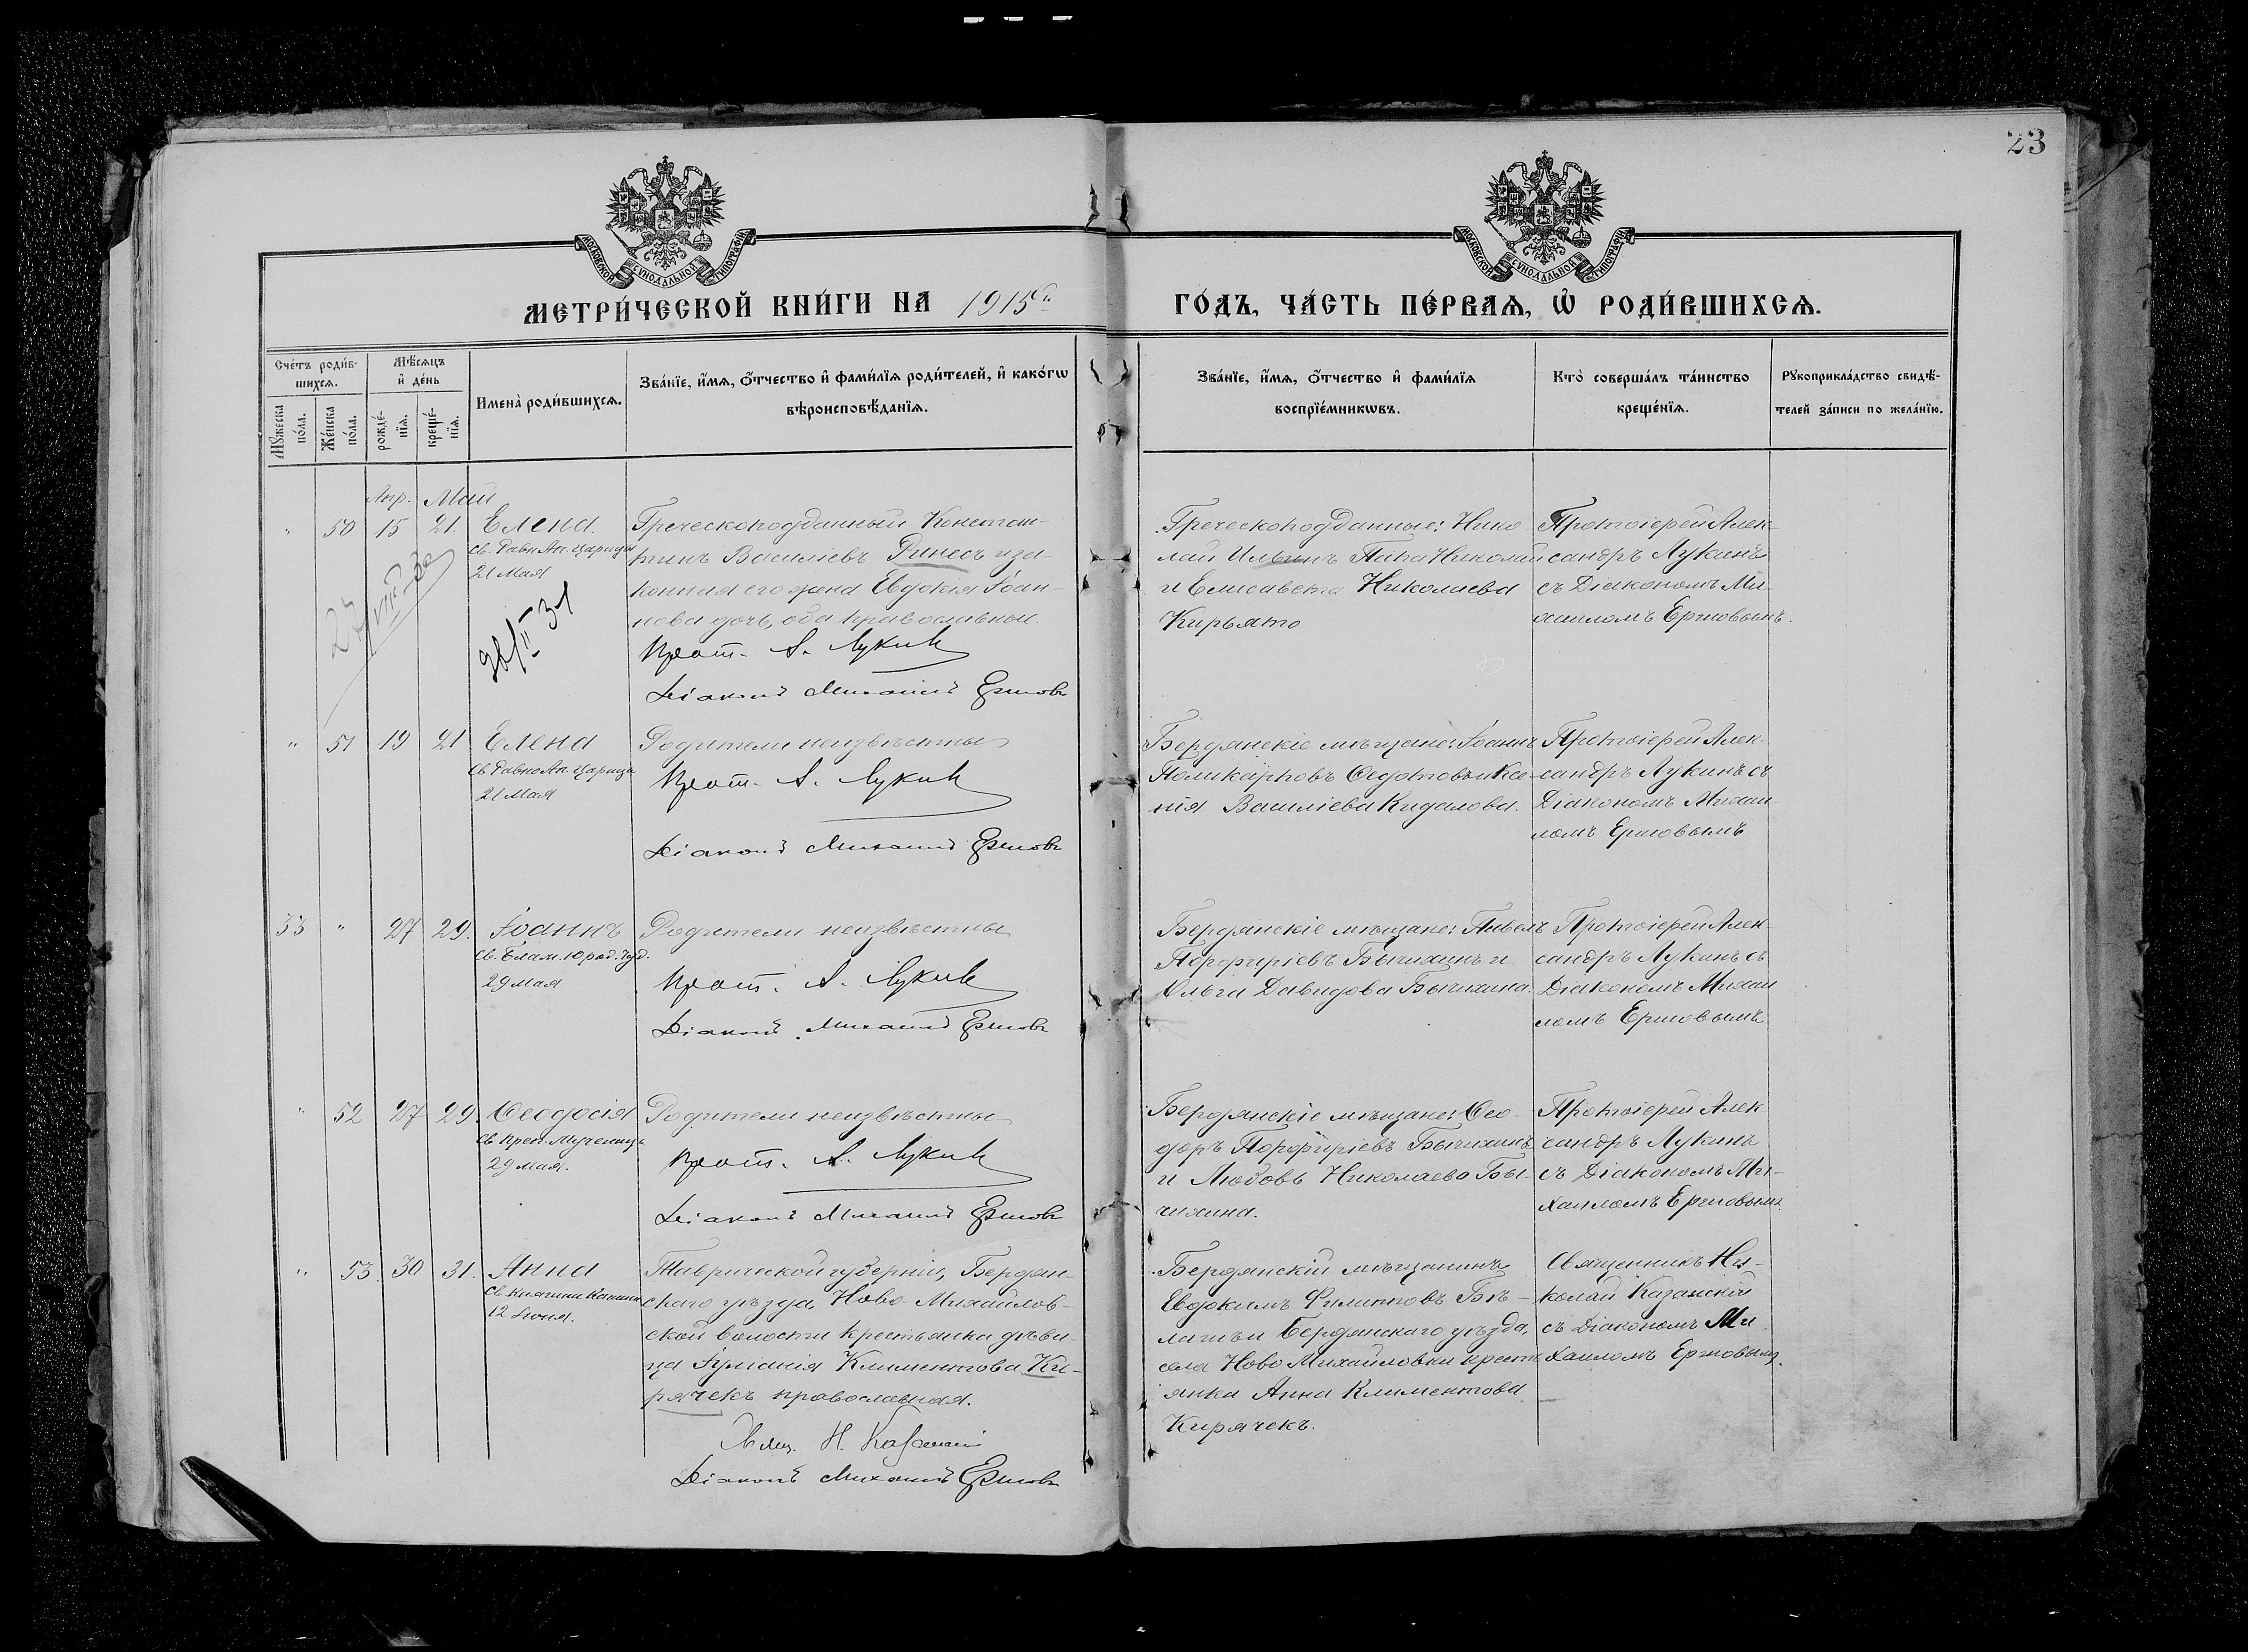 23
МОСКОВСКОЙ СѴНОДАЛЬНОЙ ТИПОГРАФІИ
МОСКОВСКОЙ СѴНОДАЛЬНОЙ ТИПОГРАФІИ
МЕТРИ́ЧЕСКОЙ КНИ́ГИ НА 1915й
ГО́ДЪ, ЧА́СТЬ ПЕ́РВАѦ, Ѽ РОДИ́ВШИХСѦ.
Сче́тъ роди́в-
шихсѧ.
Мꙋ́жеска
по́ла.
Же́нска
по́ла.
Мѣ́сѧцъ
и҆ де́нь
рожде́-
нїѧ.
креще́-
нїѧ.
Имена̀ роди́вшихсѧ.
Зва́нїе, и҆́мѧ, ѻ҆́тчество и҆ фами́лїѧ роди́телей, и҆ како́гѡ
вѣроисповѣ́данїѧ.
Зва́нїе, и҆́мѧ, ѻ҆́тчество и҆ фами́лїѧ
воспрїе́мникѡвъ.
Кто̀ соверша́лъ та́инство
креще́нїѧ.
Рꙋкоприкла́дство свидѣ́-
телей за́писи по жела́нїю.
Апр. Май
" 50 15 21. Елена.
св. Равн Ап. царицы
21 Мая
Греческоподданный Констан-
тинъ Василіевъ Ринесъ и за-
конная его жена Евдокія Іоан-
нова дочь, оба православные.
Прот. А. Лукинъ
Діаконъ Михаилъ Ершовъ
Греческоподданные: Нико
лай Ильинъ Папа Николай
и Елисавета Николаева
Кирьято
Протоіерей Алек-
сандръ Лукинъ
съ Діакономъ Ми-
хаиломъ Ершовымъ.
" 51 19 21 Елена
Св РавноАп. царицы
21 Мая
Родители неизвѣстны
Прот. А. Лукинъ
Діаконъ Михаилъ Ершовъ
Бердянскіе мѣщане: Іоаннъ
Поликарповъ Ѳедотовъ и Ксе-
нія Василіева Кидалова.
Протоіерей Алек-
сандръ Лукинъ съ
Діакономъ Михаи
ломъ Ершовымъ
33 " 27 29. Іоаннъ
св. Блаж. Юрод. Чуд.
29 мая
Родители неизвѣстны
Прот. А. Лукинъ
Діаконъ Михаилъ Ершовъ
Бердянскіе мѣщане: Павелъ
Порфиріевъ Бычихинъ и
Ольга Давидова Бычихина.
Протоіерей Алек
сандръ Лукинъ съ
Діакономъ Михаи
ломъ Ершовымъ
" 52 27 29. Ѳеодосія
Св Преп. Мученицы
29 мая.
Родители неизвѣстны
Прот. А. Лукинъ
Діаконъ Михаилъ Ершовъ
Бердянскіе мѣщане: Ѳео-
доръ Порфиріевъ Бычихинъ
и Любовь Николаева Бы-
чихина.
Протоіерей Алек
сандръ Лукинъ
съ Діакономъ Ми-
хаиломъ Ершовымъ.
" 53 30 31. Анна
Св Княгини Кашин
12 Іюня.
Таврической губерніи, Бердян-
скаго уѣзда, Ново-Михайлов-
ской волости крестьянка дѣви-
ца Іуліанія Климентова Ки-
рячекъ православная.
Свящ. Н. Казанскій
Діаконъ Михаилъ Ершовъ
Бердянскій мѣщанинъ
Евдокимъ Филипповъ Бѣ-
лашъ и Бердянскаго уѣзда,
села Ново Михайловки кресть
янка Анна Климентова
Кирячекъ.
Священникъ Ни-
колай Казанскій
съ Діакономъ Ми
хаиломъ Ершовымъ.